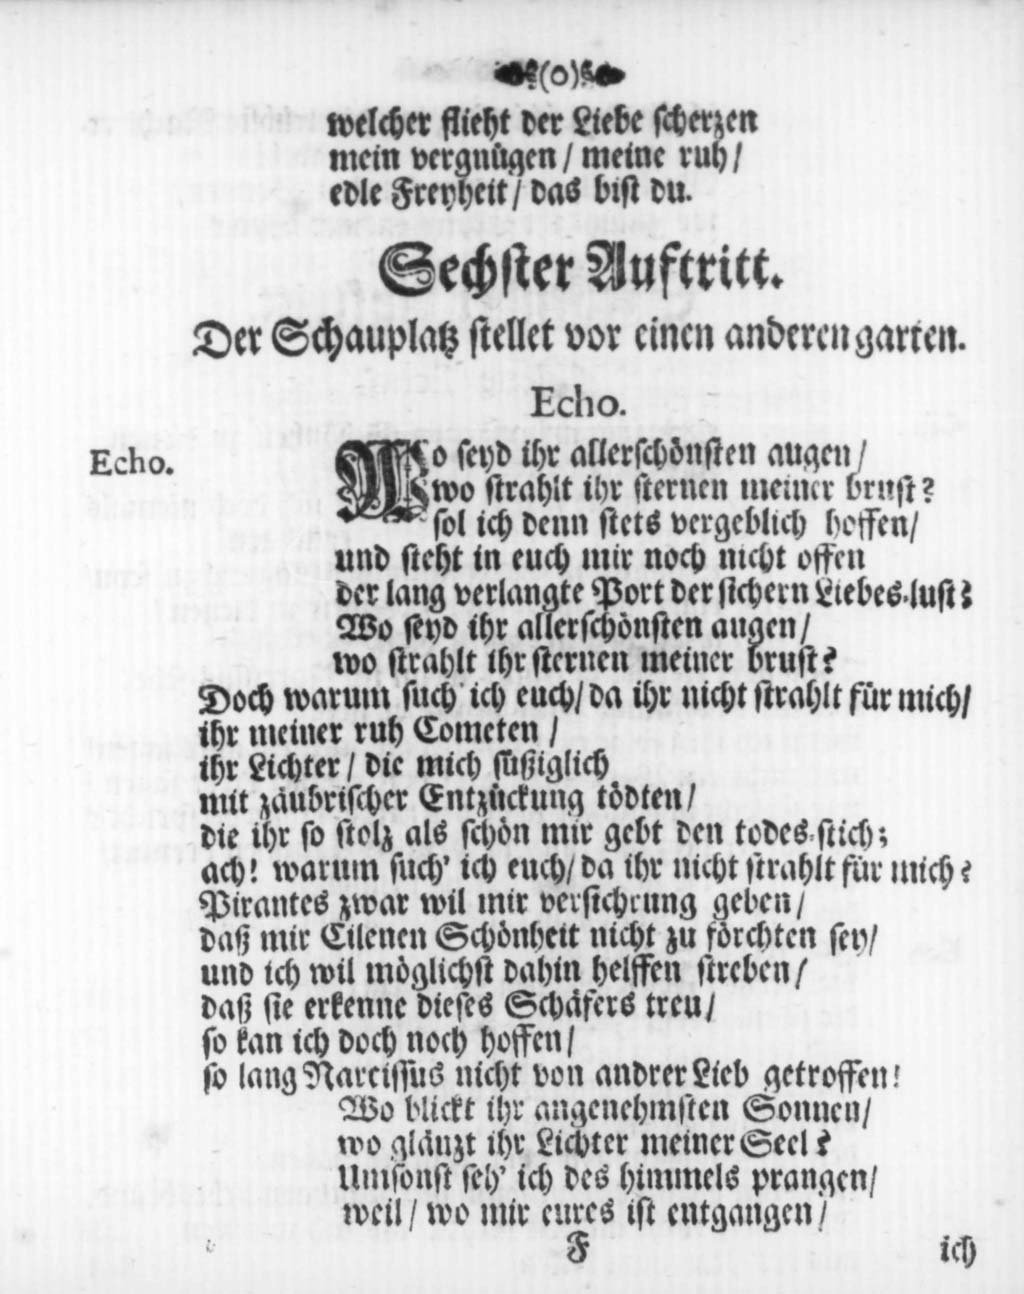 (o)
welcher flieht der Liebe scherzen
mein vergnügen / meine ruh /
edle Freyheit / das bist du.
Sechster Auftritt.
Der Schauplatz stellet vor einen anderen garten.
Echo.
Echo. Wo seyd ihr allerschönsten augen /
wo strahlt ihr sternen meiner brust?
sol ich denn stets vergeblich hoffen /
und steht in euch mir noch nicht offen
der lang verlangte Port der sichern Liebes-lust?
Wo seyd ihr allerschönsten augen /
wo strahlt ihr sternen meiner brust?
Doch warum such' ich euch / da ihr nicht strahlt für mich /
ihr meiner ruh Cometen /
ihr Lichter / die mich süßiglich
mit zäubrischer Entzückung tödten /
die ihr so stolz als schön mir gebt den todes-stich;
ach! warum such' ich euch / da ihr nicht strahlt für mich?
Pirantes zwar wil mir versichrung geben /
daß mir Cilenen Schönheit nicht zu förchten sey /
und ich wil möglichst dahin helffen streben /
daß sie erkenne dieses Schäfers treu /
so kan ich doch noch hoffen /
so lang Narcissus nicht von andrer Lieb getroffen!
Wo blickt ihr angenehmsten Sonnen /
wo gläuzt ihr Lichter meiner Seel?
Umsonst seh' ich des himmels prangen /
weil / wo mir eures ist entgangen /
F ich